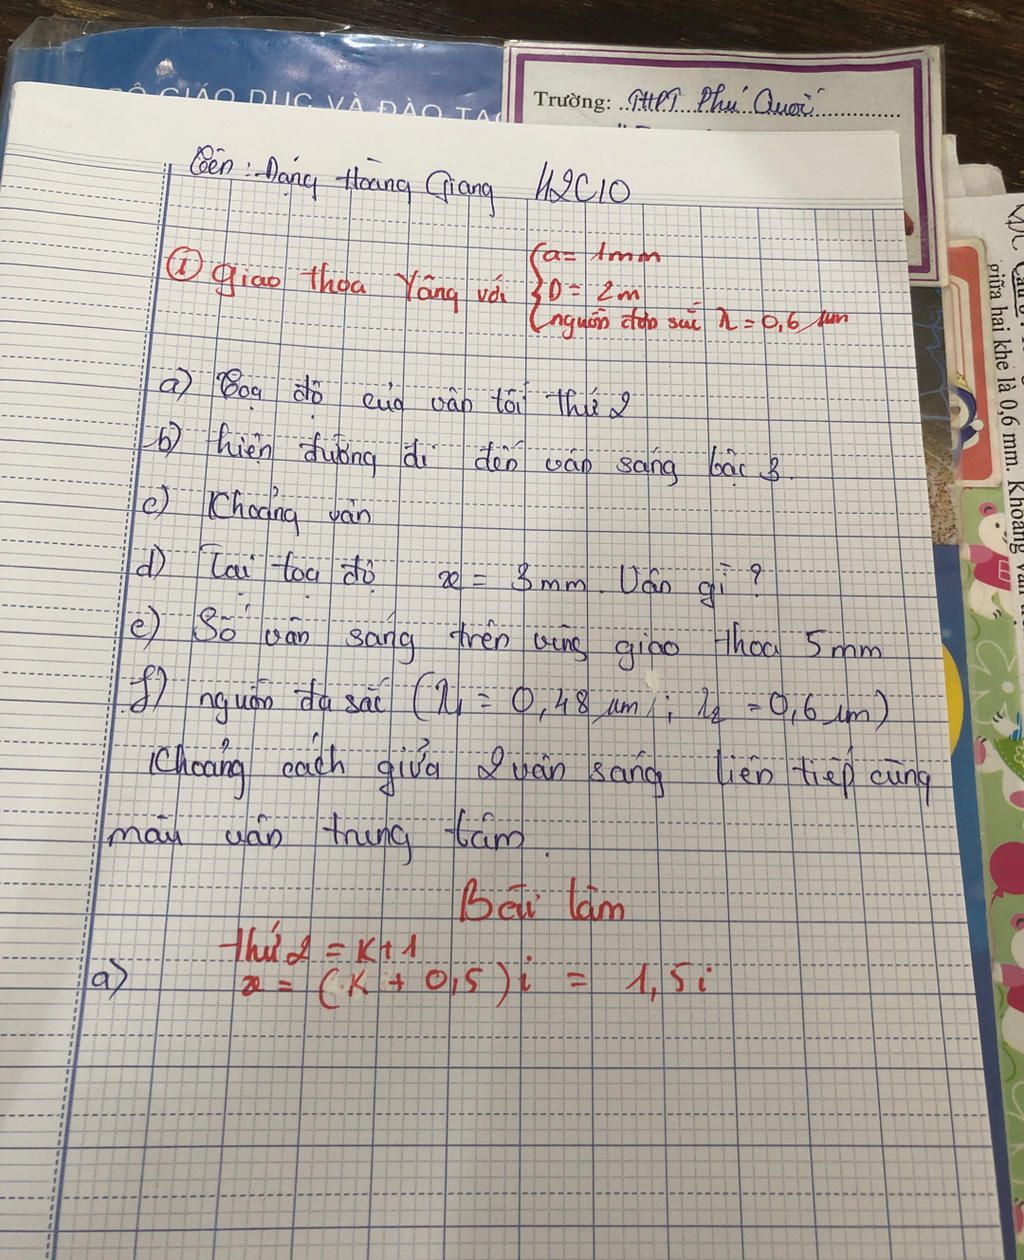 BỘ GIÁO DỤC VÀ ĐÀO TẠ
Trường: THPT Phú Quới
Tên: Đặng Hoàng Giang 12C10
① Giao thoa Yâng với
a = 1mm
D = 2m
nguồn đơn sắc λ = 0,6 μm
a) Toạ độ của vân tối thứ 2
b) hiện đường đi đến vân sáng bậc 3.
c) Khoảng vân
d) Tại toạ độ x = 3mm. Vân gì ?
e) Số vân sáng trên vùng giao thoa 5mm
f) nguồn đa sắc (λ1 = 0,48 μm ; λ2 = 0,6 μm)
Khoảng cách giữa 2 vân sáng liên tiếp cùng
màu vân trung tâm.
Bài làm
thứ 2 = K+1
a) x = (K + 0,5) i = 1,5i
giữa hai khe là 0,6 mm. Khoảng vân